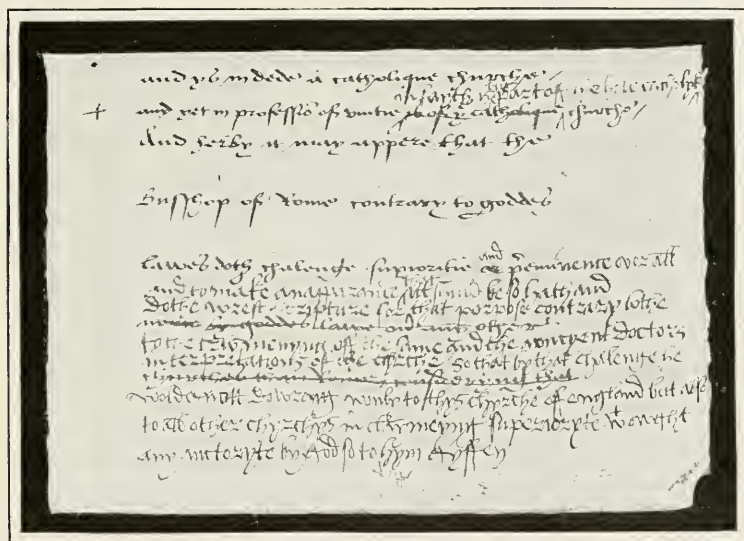 and ys in dede a catholique churche
and yet in professiō of vnitie is of ye catholique churche
And herby it may appere that the
Busshop of Rome contrary to goddes
lawes doth chalenge supioritie and or p̄eminence over all
and to make an apparance that it shuld be so hath and
dothe wrest scripture for that porpose contrary bothe
goddes lawe
to the trw menyng off the same and the auncyent doctors
interpretations of the chyrche so that by that chalenge he
wold do wrang nott only to thys chyrche of england but also
to all other chyrchys in claymeyng superioryte wowght
any auctoryte by god so to hym gyffen